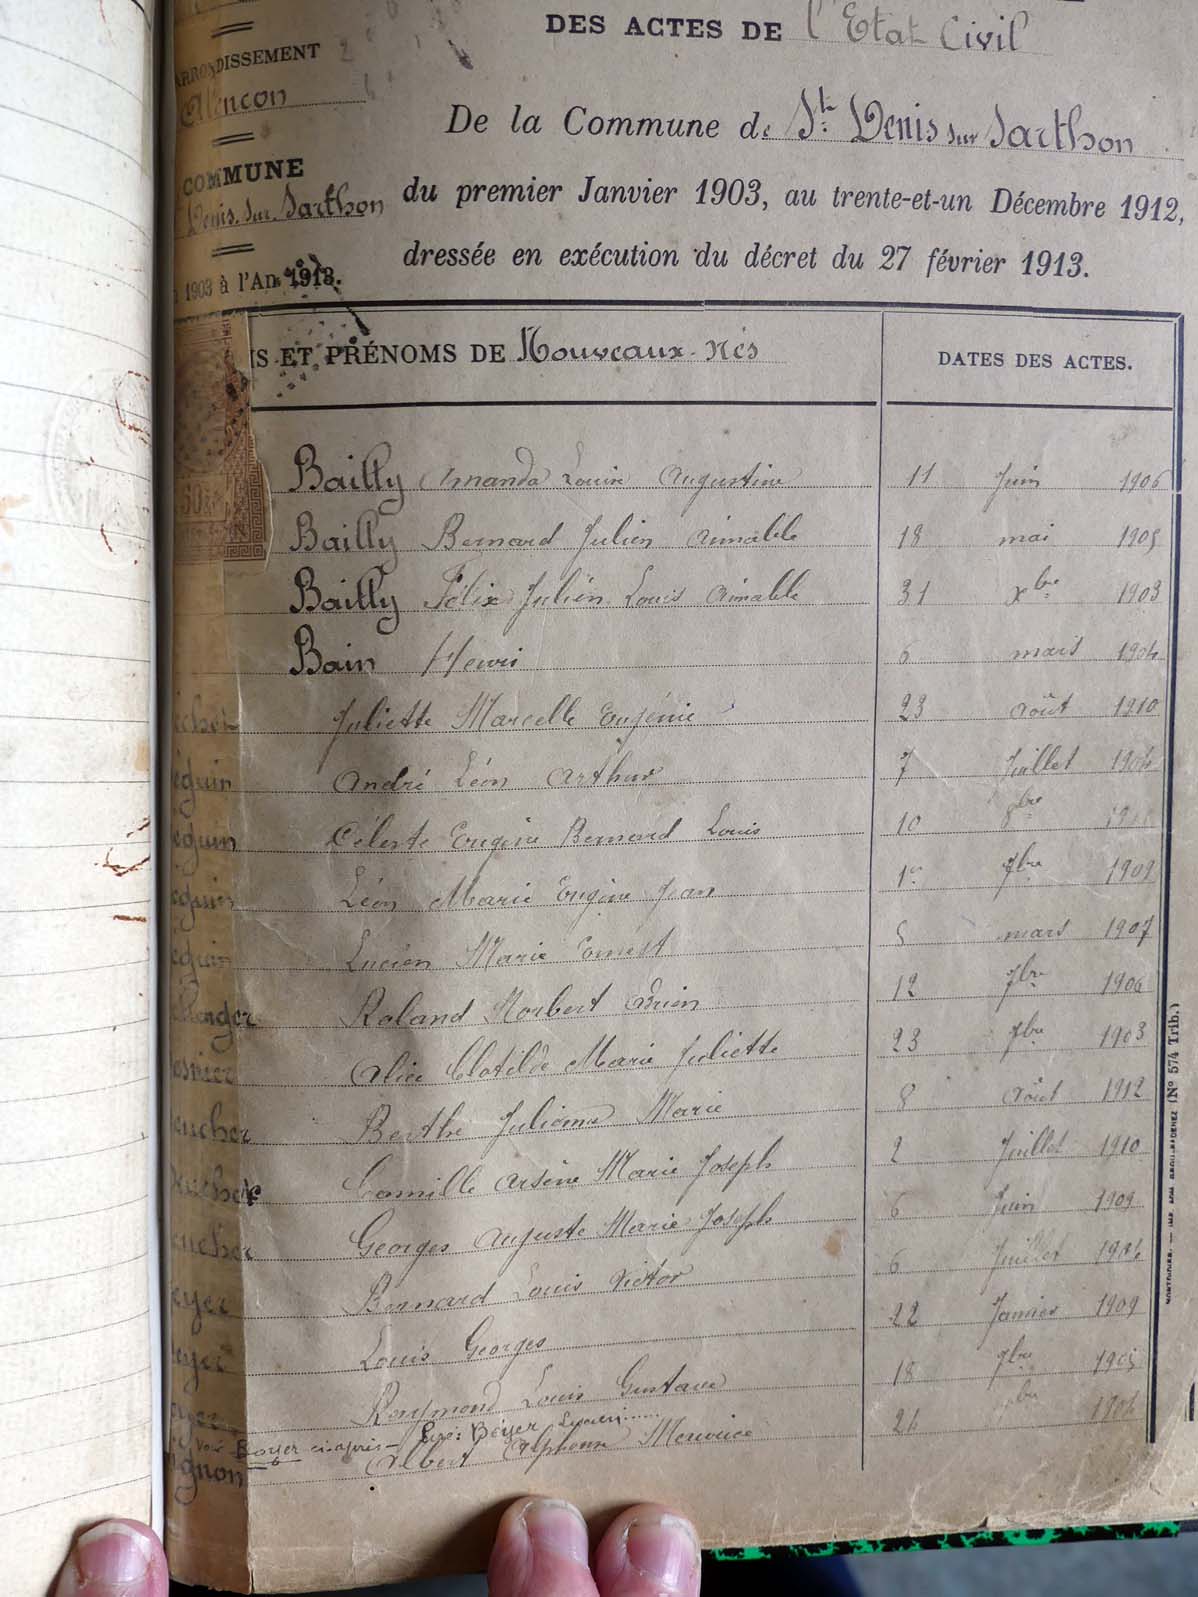 DES ACTES DE l'Etat Civil
ARRONDISSEMENT
Alençon
De la Commune de St. Denis sur Sarthon
COMMUNE
Denis sur Sarthon
du premier Janvier 1903, au trente-et-un Décembre 1912,
dressée en exécution du décret du 27 février 1913.
1903 à l'An 1913.
S ET PRÉNOMS DE Nouveaux-Nés
DATES DES ACTES.
Bailly Amanda Louise Augustine 11 Juin 1906
Bailly Bernard Julien Aimable 18 mai 1905
Bailly Félix Julien Louis Aimable 31 Xbre 1903
Bain Henri 6 mars 1904
Juliette Marcelle Eugénie 23 Août 1910
éguin André Léon Arthur 7 Juillet 1904
éguin Céleste Eugène Bernard Louis 10 8bre
éguin Léon Marie Eugène Jean 1er 7bre 1909
éguin Lucien Marie Ernest 5 mars 1907
Roland Norbert Adrien 12 7bre 1906
Alice Clotilde Marie Juliette 23 7bre 1903
eucher Berthe Julienne Marie 8 Août 1912
Camille Arsène Marie Joseph 2 Juillet 1910
eucher Georges Auguste Marie Joseph 6 Juin 1909
eyer Bernard Louis Victor 6 Juillet 1904
eyer Louis Georges 22 Janvier 1909
Raymond Louis Gustave 18 7bre 1905
voir Boyer ci-après - Père: Beyer Lucien
gnon Albert Alphonse Maurice 24 1904
(No 574 Trib.)